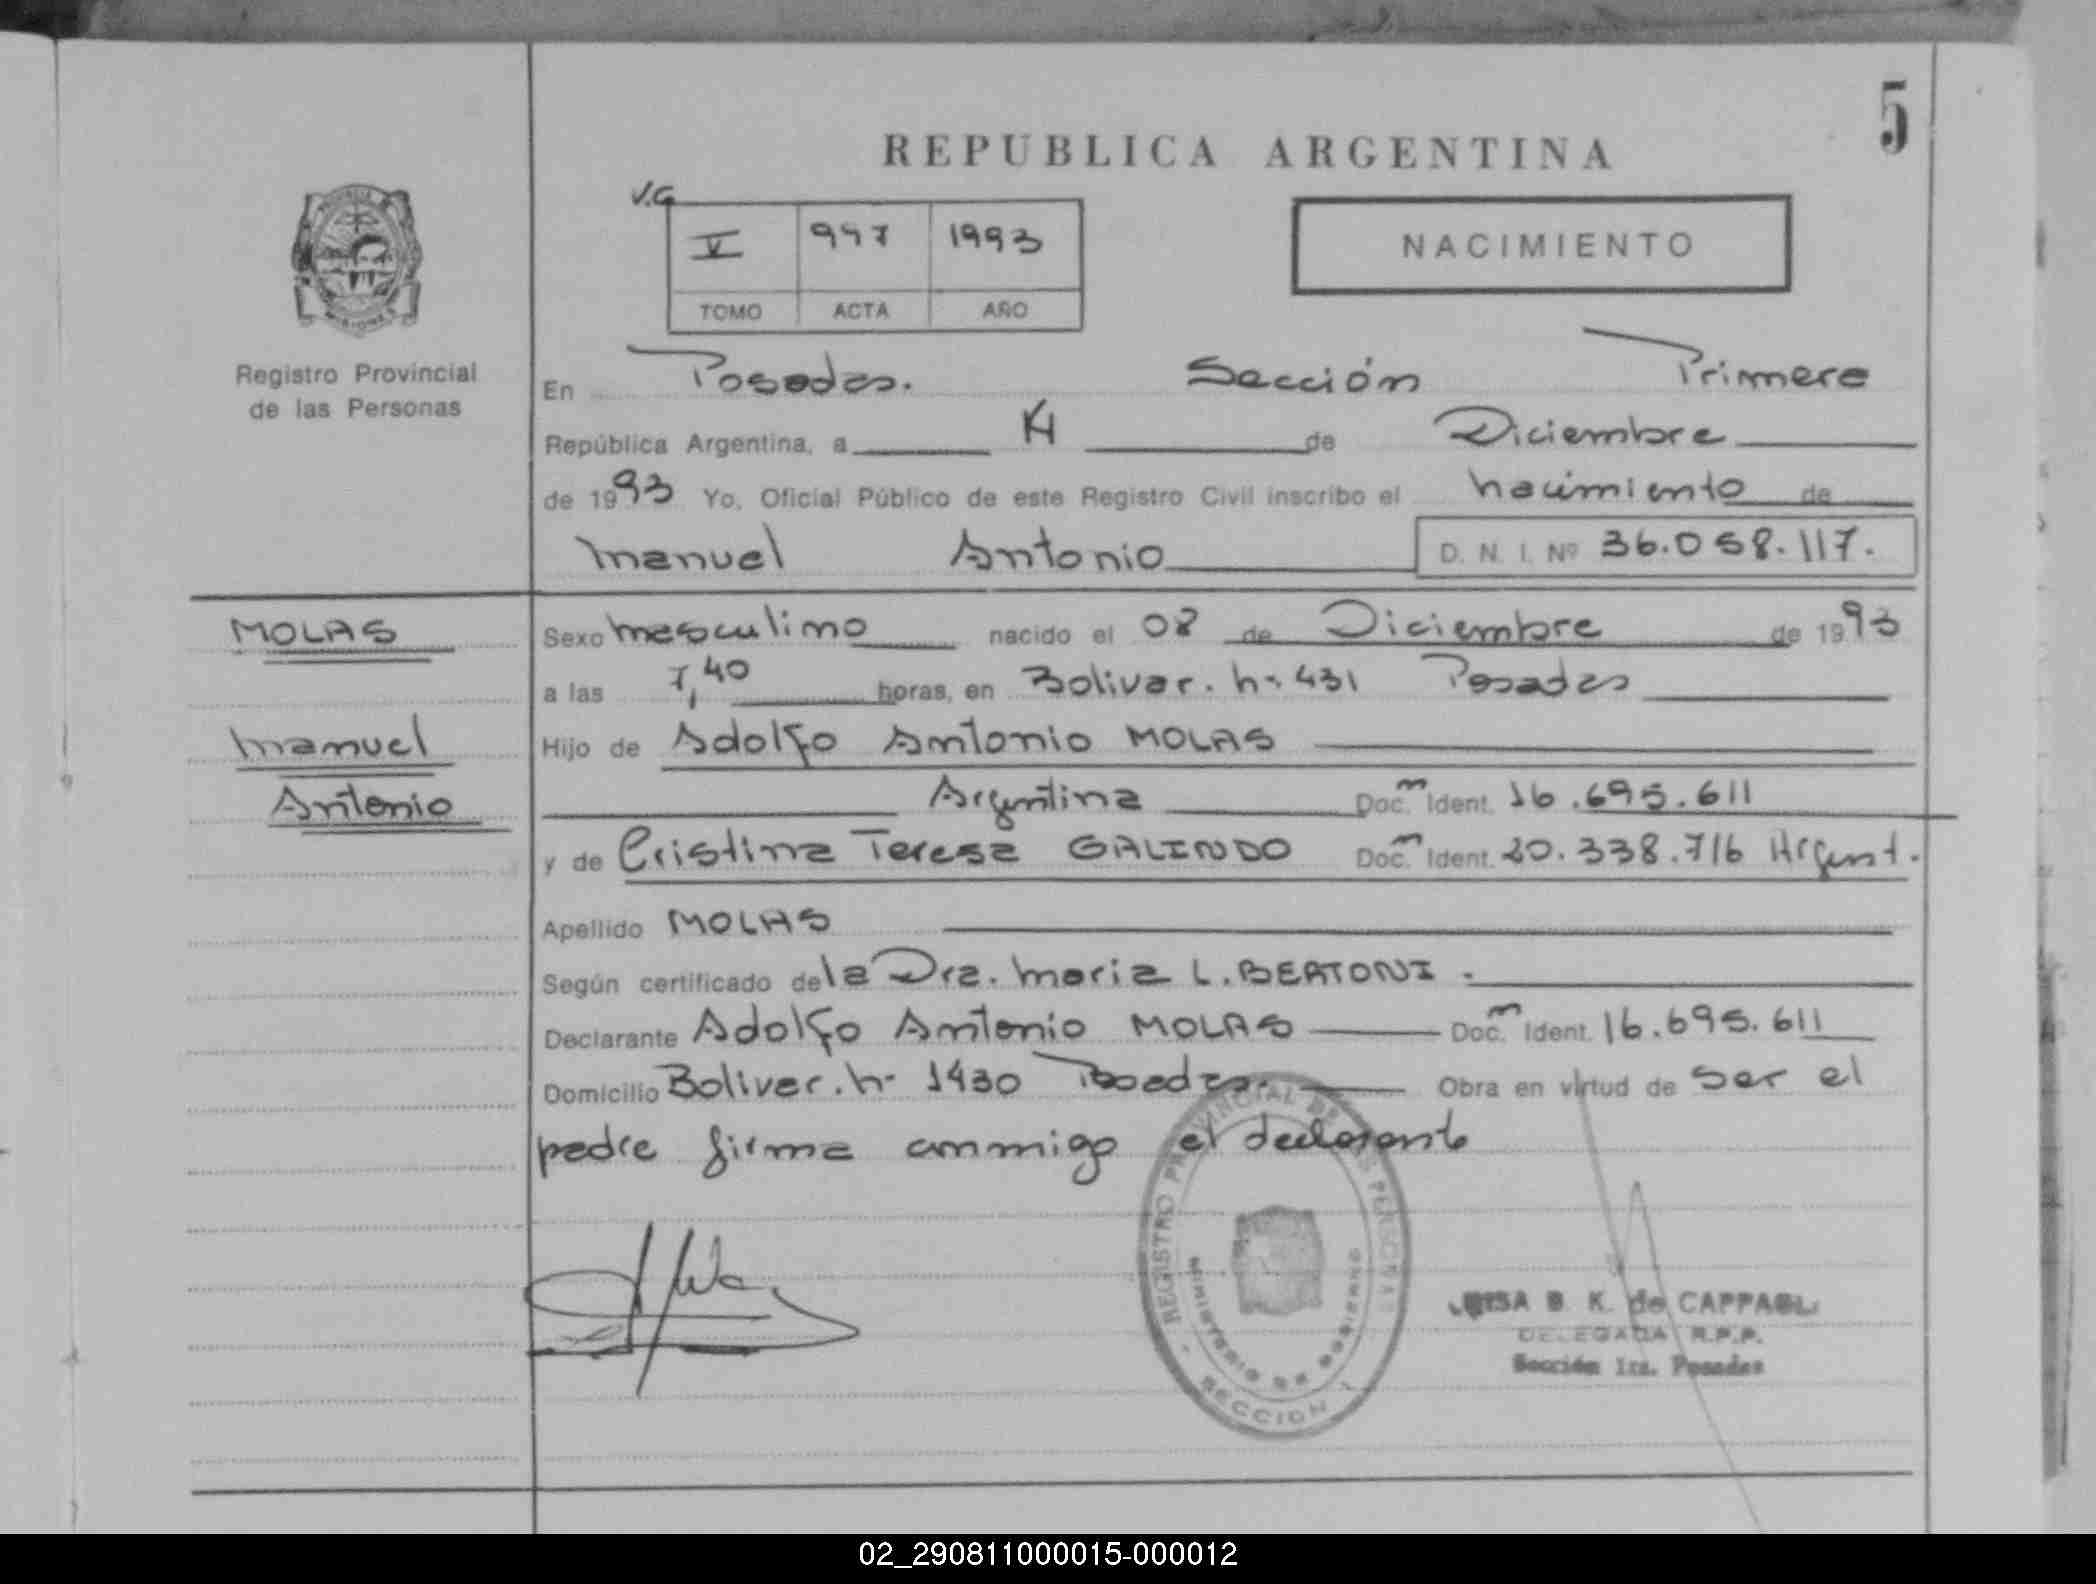 5
REPUBLICA ARGENTINA
V.G
V 997 1993
TOMO ACTA AÑO
NACIMIENTO
PROVINCIA DE MISIONES
Registro Provincial
de las Personas
En Posadas. Sección Primera
República Argentina, a 14 de Diciembre
de 1993 Yo, Oficial Público de este Registro Civil inscribo el nacimiento de
Manuel Antonio D. N. I. Nº 36.058.117.
MOLAS
Sexo masculino nacido el 08 de Diciembre de 1993
a las 7,40 horas, en Bolivar. nº 431 Posadas
Manuel
Hijo de Adolfo Antonio MOLAS
Antonio
Argentina Doc. Ident. 16.695.611
y de Cristina Teresa GALINDO Doc. Ident. 20.338.716 Argent.
Apellido MOLAS
Según certificado de la Dra. Maria L. BERTONI.
Declarante Adolfo Antonio MOLAS Doc. Ident. 16.695.611
Domicilio Bolivar. nº 1430 Posadas. Obra en virtud de ser el
padre firma conmigo el declarante
REGISTRO PROVINCIAL DE LAS PERSONAS
MINISTERIO DE GOBIERNO
SECCION 1
B. K. de
DELEGADA R.P.P.
Sección 1ra. Posadas
02_290811000015-000012